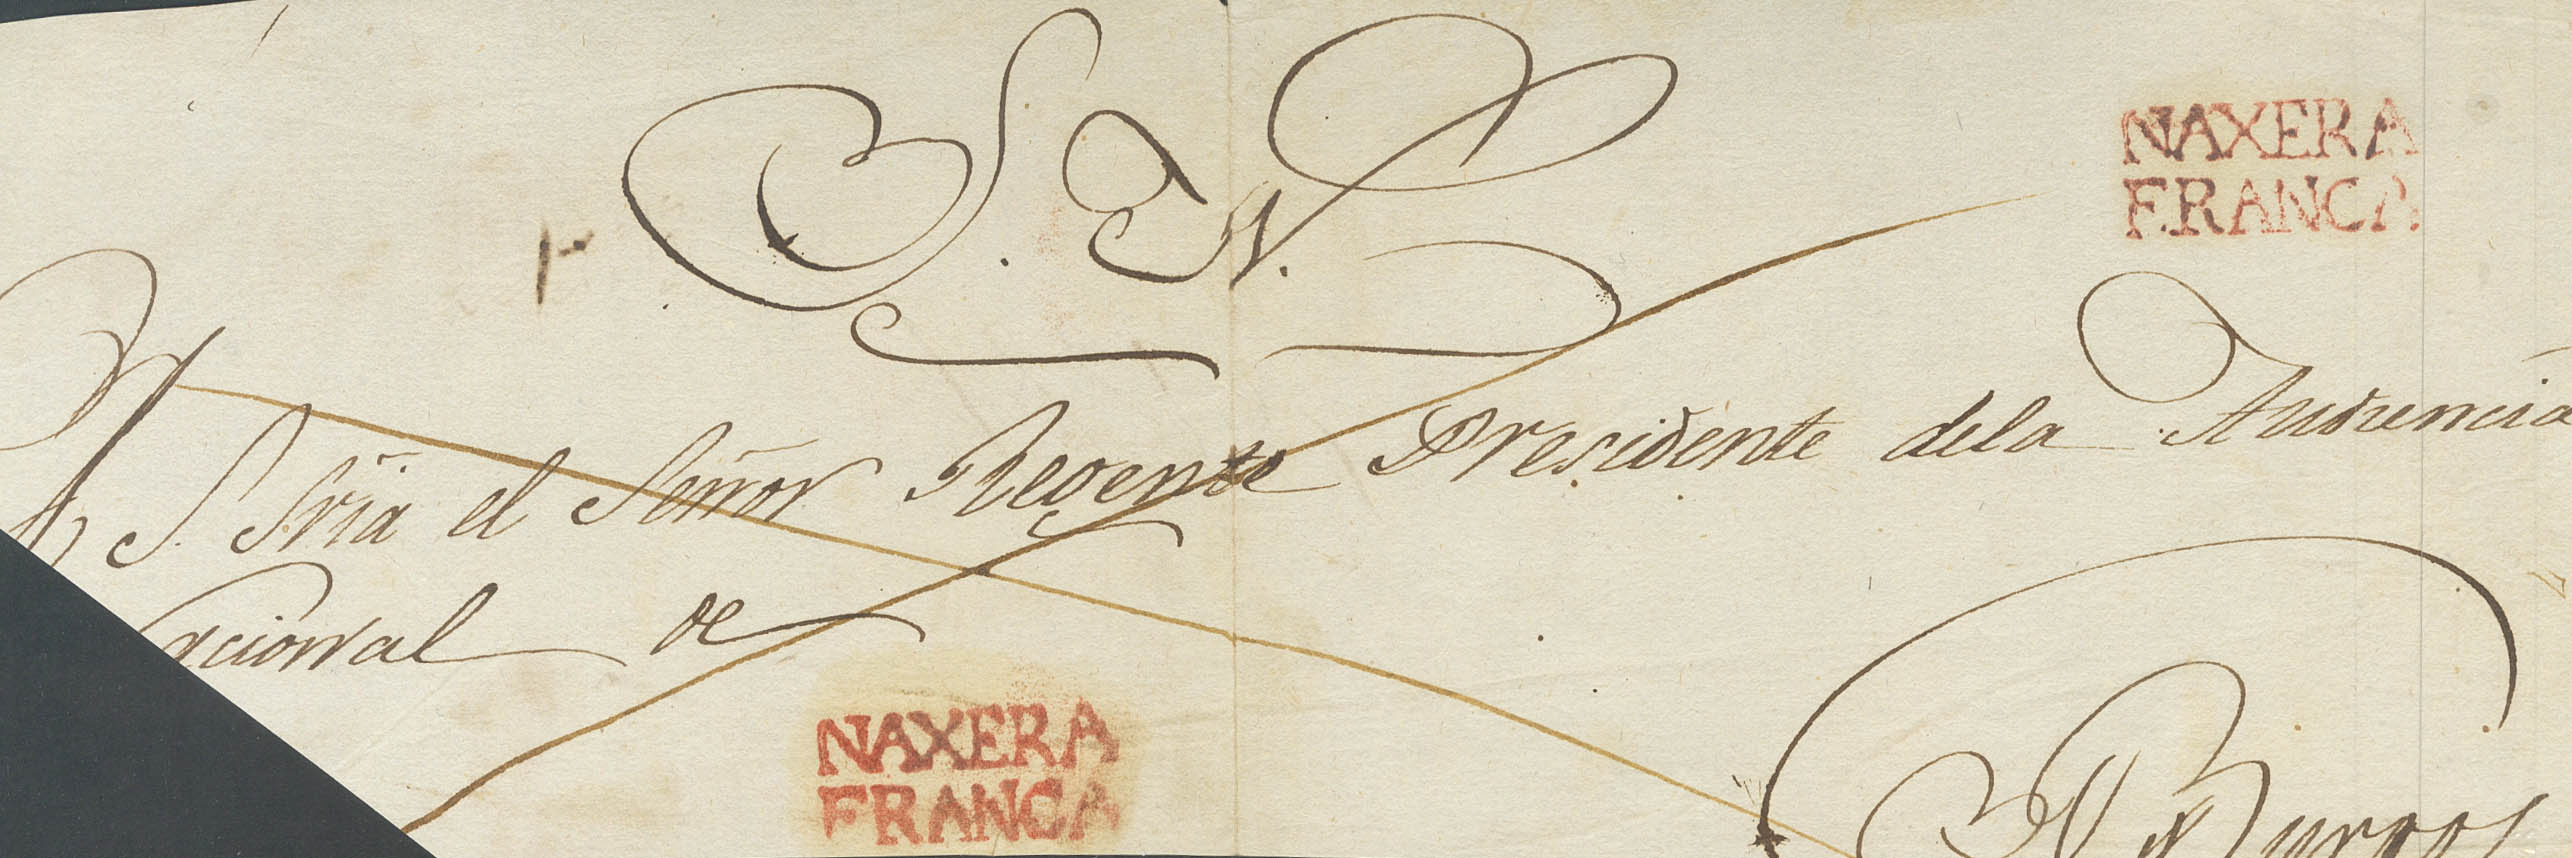 S. N.
NAXERA
FRANCA
A S. Sría el Señor Regente Presidente dela Audiencia
acional de
NAXERA
FRANCA
Burgos